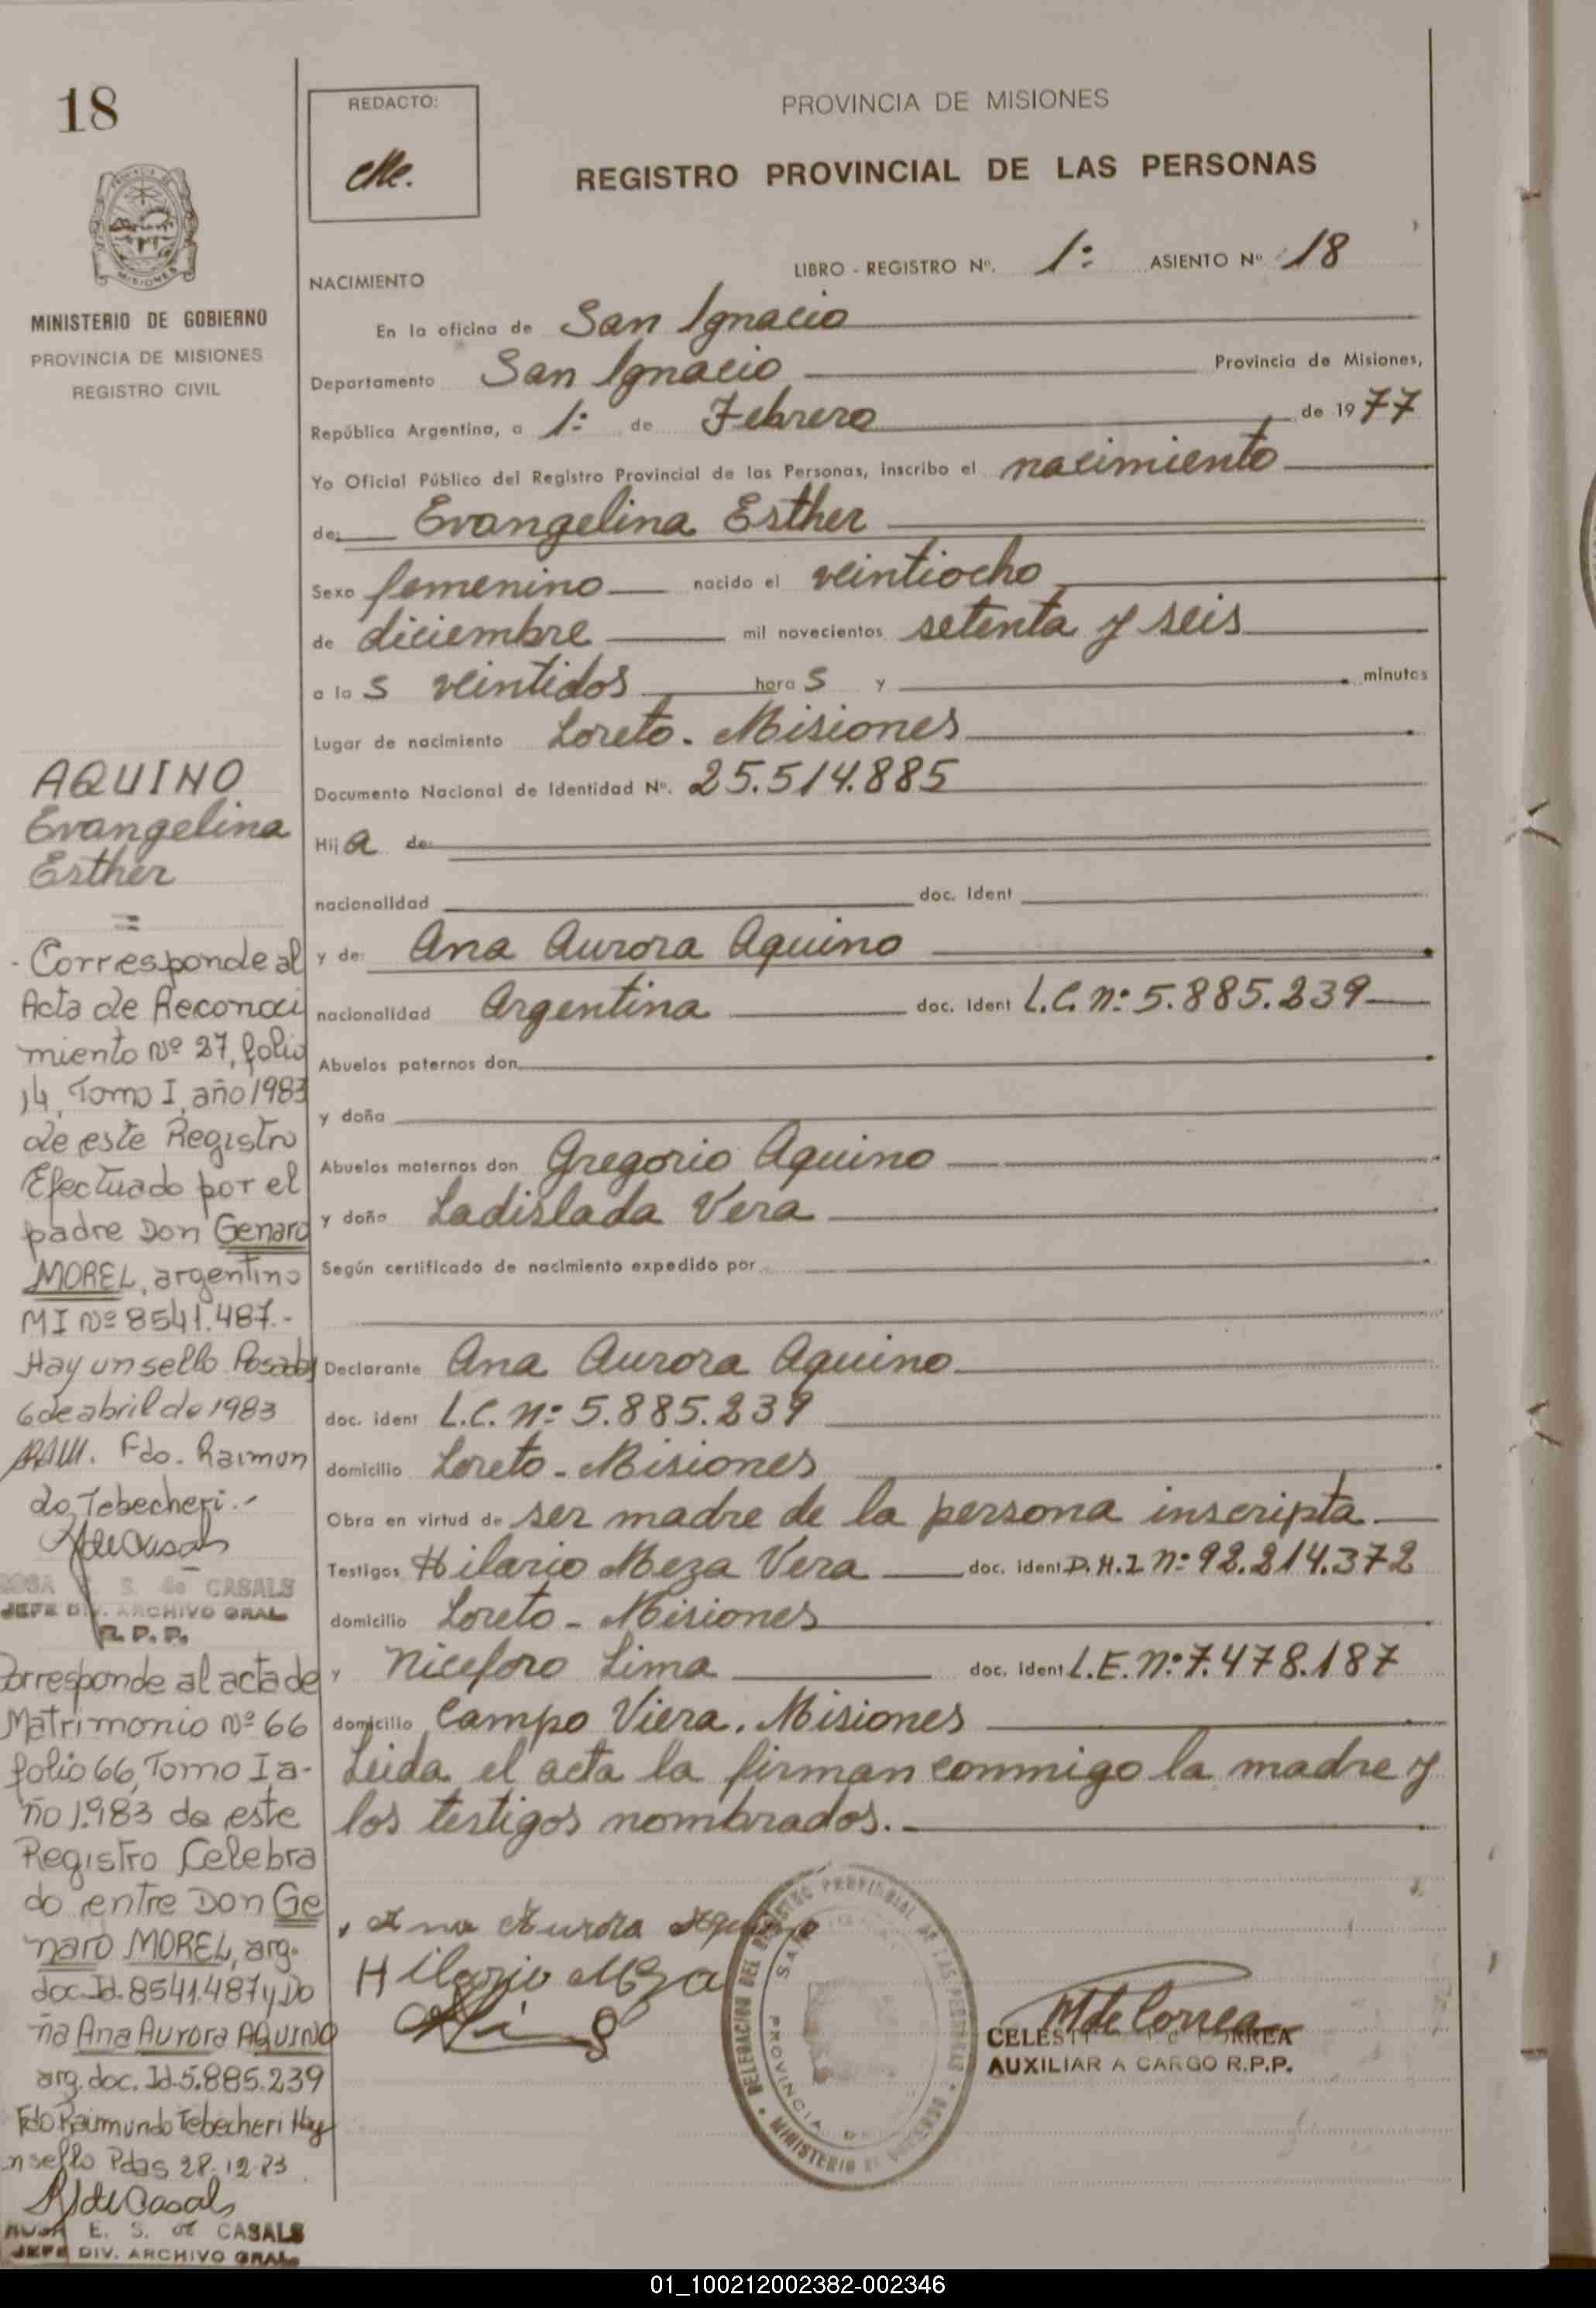 18
MINISTERIO DE GOBIERNO
PROVINCIA DE MISIONES
REGISTRO CIVIL
REDACTO:
PROVINCIA DE MISIONES
REGISTRO PROVINCIAL DE LAS PERSONAS
LIBRO - REGISTRO Nº. 1º ASIENTO Nº 18
NACIMIENTO
En la oficina de San Ignacio
Departamento San Ignacio Provincia de Misiones,
República Argentina, a 1º de Febrero de 1977
Yo Oficial Público del Registro Provincial de las Personas, inscribo el nacimiento
de: Evangelina Esther
Sexo femenino nacido el veintiocho
de diciembre mil novecientos setenta y seis
a las veintidos horas y minutos
Lugar de nacimiento Loreto. Misiones
Documento Nacional de Identidad Nº. 25.514.885
Hija de:
nacionalidad doc. Ident
y de: Ana Aurora Aquino
nacionalidad Argentina doc. Ident L.C. nº 5.885.239
Abuelos paternos don
y doña
Abuelos maternos don Gregorio Aquino
y doña Ladislada Vera
Según certificado de nacimiento expedido por
Declarante Ana Aurora Aquino
doc. ident L.C. nº 5.885.239
domicilio Loreto - Misiones
Obra en virtud de ser madre de la persona inscripta
Testigos Hilario Meza Vera doc. ident D.N.I nº 92.214.372
domicilio Loreto - Misiones
y Niceforo Lima doc. Ident L.E. nº 7.478.187
domicilio Campo Viera. Misiones
Leida el acta la firman conmigo la madre y
los testigos nombrados.
Ana Aurora Aquino
Hilario Meza
M de Correa
CELEST CORREA
AUXILIAR A CARGO R.P.P.
DELEGACION DEL REGISTRO PROVINCIAL DE LAS PERSONAS
MINISTERIO DE GOBIERNO
PROVINCIA
AQUINO
Evangelina
Esther
=
- Corresponde al
Acta de Reconoci
miento Nº 27, folio
14, Tomo I, año 1983
de este Registro
Efectuado por el
padre Don Genaro
MOREL, argentino
MI Nº 8541.487.-
Hay un sello Posadas
6 de abril de 1983
Fdo. Raimun
do Tebecheri.-
R de Casals
ROSA E. S. de CASALS
JEFE DIV. ARCHIVO GRAL
R.P.P.
Corresponde al acta de
Matrimonio Nº 66
folio 66, Tomo I a-
ño 1983 de este
Registro Celebra
do entre Don Ge
naro MOREL, arg.
doc. Id. 8541.487 y Do
ña Ana Aurora AQUINO
arg. doc. Id 5.885.239
Fdo Raimundo Tebecheri Hay
un sello Pdas 28-12-83
R de Casals
ROSA E. S. de CASALS
JEFE DIV. ARCHIVO GRAL
01_100212002382-002346